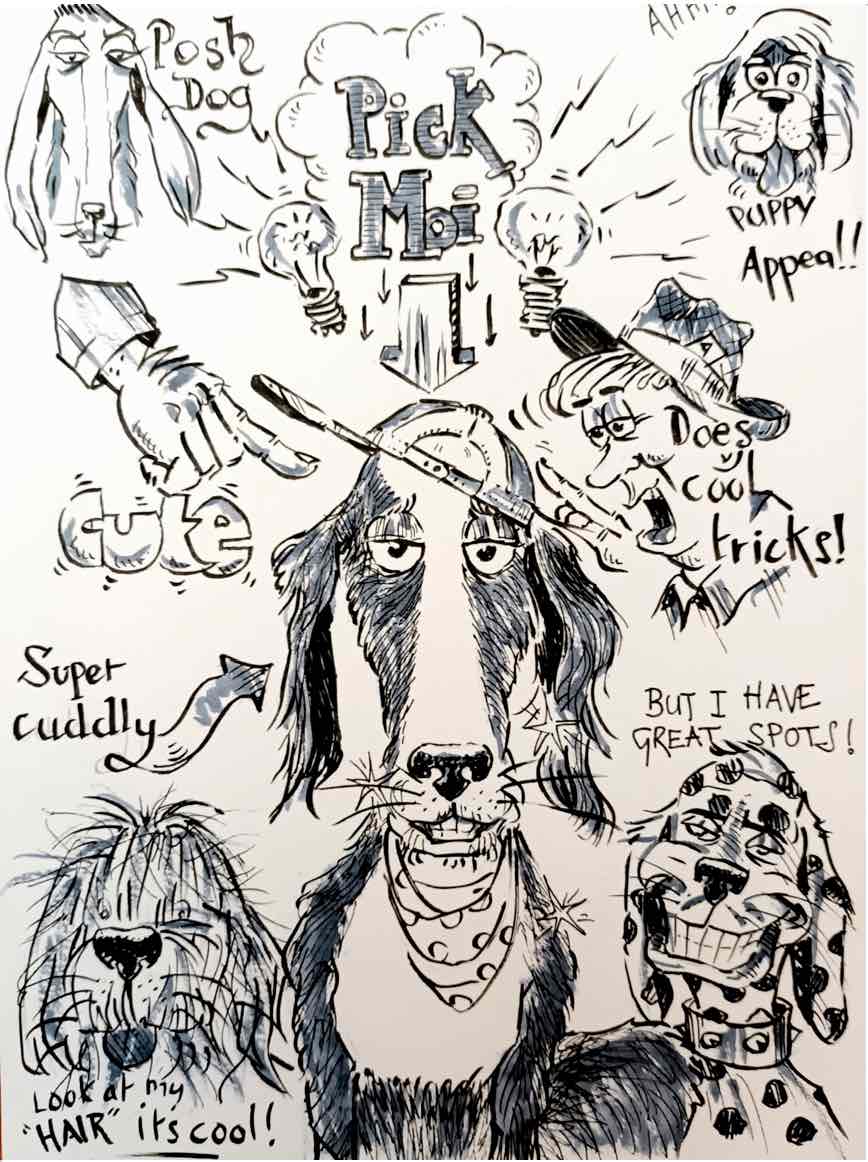 Posh
Dog
Pick
Moi
AHH!
PUPPY
Appeal!!
cute
Does
cool
tricks!
Super
cuddly
BUT I HAVE
GREAT SPOTS!
Look at my
"HAIR" its cool!